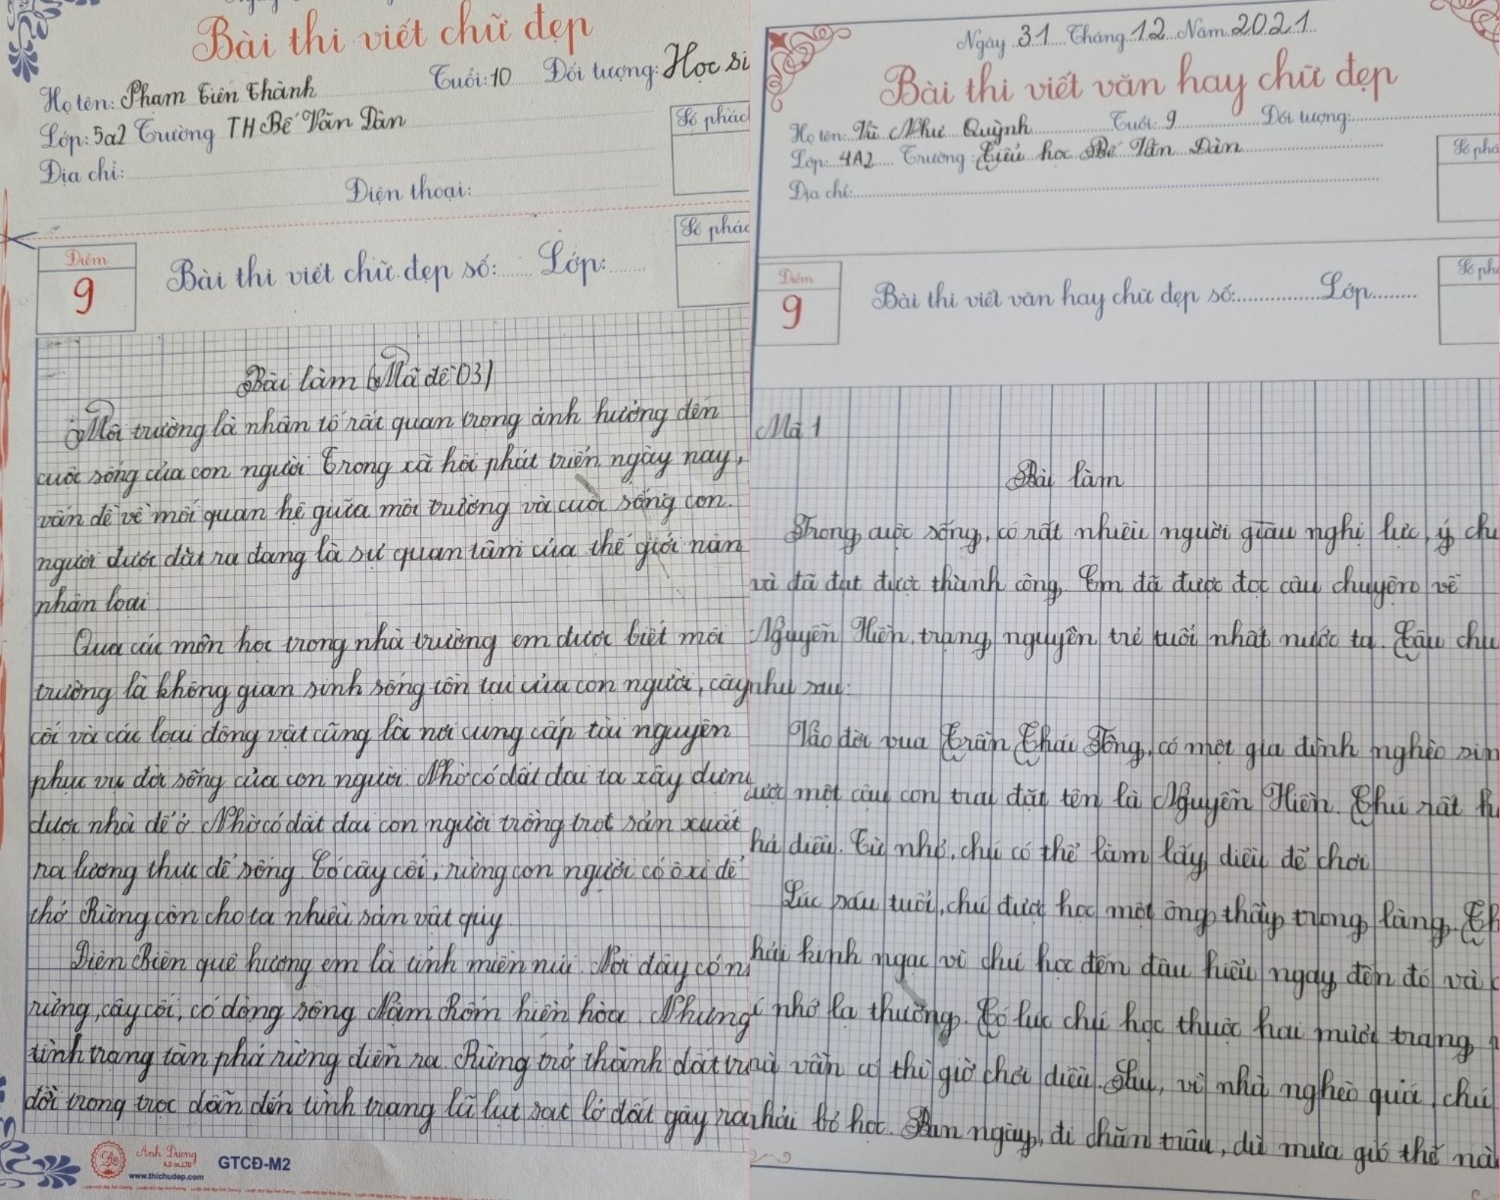 Bài thi viết chữ đẹp
Họ tên: Phạm Tiến Thành Tuổi: 10 Đối tượng: Học si
Lớp: 5a2 Trường TH Bế Văn Đàn
Địa chỉ:
Điện thoại:
Số phác
Số phác
Điểm
9
Bài thi viết chữ đẹp số: Lớp:
Bài làm (Mã đề 03)
Môi trường là nhân tố rất quan trọng ảnh hưởng đến
cuộc sống của con người Trong xã hội phát triển ngày nay,
vấn đề về mối quan hệ giữa môi trường và cuộc sống con
người được đặt ra đang là sự quan tâm của thế giới nân
nhân loại
Qua các môn học trong nhà trường em được biết môi
trường là không gian sinh sống tồn tại của con người, cây
cối và các loại động vật cũng là nơi cung cấp tài nguyên
phục vụ đời sống của con người. Nhờ có đất đai ta xây dựng
được nhà để ở Nhờ có đất đai con người trồng trọt sản xuất
ra lương thực để sống Có cây cối, rừng con người có ô xi để
thở Rừng còn cho ta nhiều sản vật quý
Điện Biên quê hương em là tỉnh miền núi. Nơi đây có n
rừng, cây cối, có dòng sông Nậm Rốm hiền hòa. Nhưng
tình trạng tàn phá rừng diễn ra Rừng trở thành đất tr
đồi trong trọc dẫn đến tình trạng lũ lụt sạt lở đất gây ra
Ánh Dương
www.thichudep.com
GTCĐ-M2
Ngày 31 Tháng 12 Năm 2021
Bài thi viết văn hay chữ đẹp
Họ tên: Vũ Như Quỳnh Tuổi: 9 Đối tượng:
Lớp: 4A2 Trường: Tiểu học Bế Văn Đàn
Địa chỉ:
Số phá
Số ph
Điểm
9
Bài thi viết văn hay chữ đẹp số: Lớp
Mã 1
Bài làm
Trong cuộc sống, có rất nhiều người giàu nghị lực, ý ch
và đã đạt được thành công. Em đã được đọc câu chuyện về
Nguyễn Hiền, trạng nguyên trẻ tuổi nhất nước ta. Câu chu
như sau:
Vào đời vua Trần Thái Tông, có một gia đình nghèo sin
được một cậu con trai đặt tên là Nguyễn Hiền. Chú rất h
hả diều. Từ nhỏ, chú có thể làm lấy diều để chơi
Lúc sáu tuổi, chú được học một ông thầy trong làng. Th
hải kinh ngạc vì chú học đến đâu hiểu ngay đến đó và c
í nhớ lạ thường. Có lúc chú học thuộc hai mươi trang
mà vẫn có thì giờ chơi diều. Sau, vì nhà nghèo quá, chú
hải bỏ học. Ban ngày, đi chăn trâu, dù mưa gió thế nà